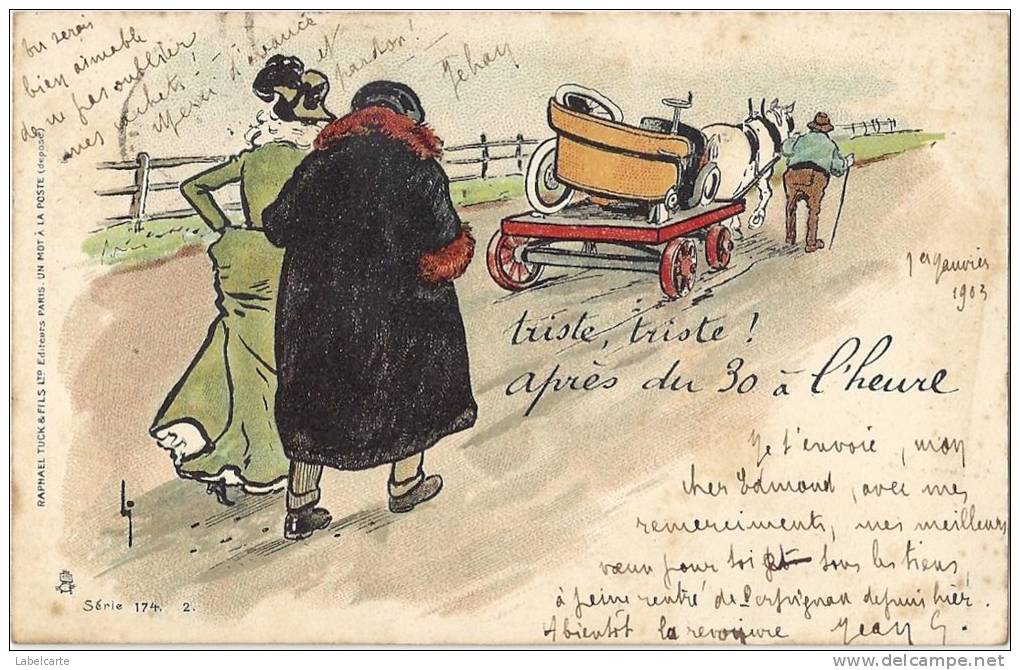 tu serais
bien aimable
de ne pas oublier
mes cachets !
Merci d'avance et
pardon !
Jehan
RAPHAEL TUCK & FILS LTD Editeurs PARIS. UN MOT À LA POSTE (déposé)
1er Janvier
1903
triste, triste !
après du 30 à l'heure
Je t'envoie, mon
cher Edmond, avec mes
remerciments, mes meilleurs
vœux pour toi et tous les tiens,
à peine rentré de Perpignan depuis hier.
A bientôt la revoyure Jean G.
Série 174. 2.
Labelcarte
http://www.delcampe.net